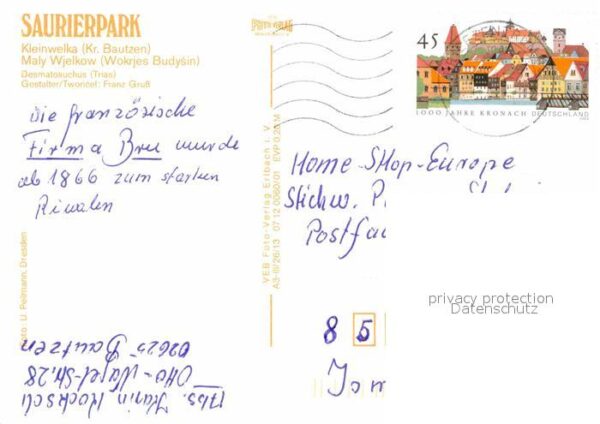 SAURIERPARK
Kleinwelka (Kr. Bautzen)
Maly Wjelkow (Wokrjes Budyšin)
Desmatosuchus (Trias)
Gestalter/Tworićel: Franz Gruß
die französische
Firma Breu wurde
ab 1866 zum starken
Rivalen
Foto: U. Pellmann, Dresden
Abs. Karin
Otto-Nagel-Str. 28
02625 Bautzen
VEB Foto-Verlag Erlbach i. V.
A3-6/26/13 07 12 0060/01 EVP 0,20 M
45
1000 JAHRE KRONACH DEUTSCHLAND
Home Shop-Europe
Stichw. P
Postfa
privacy protection
Datenschutz
8 5
Ism